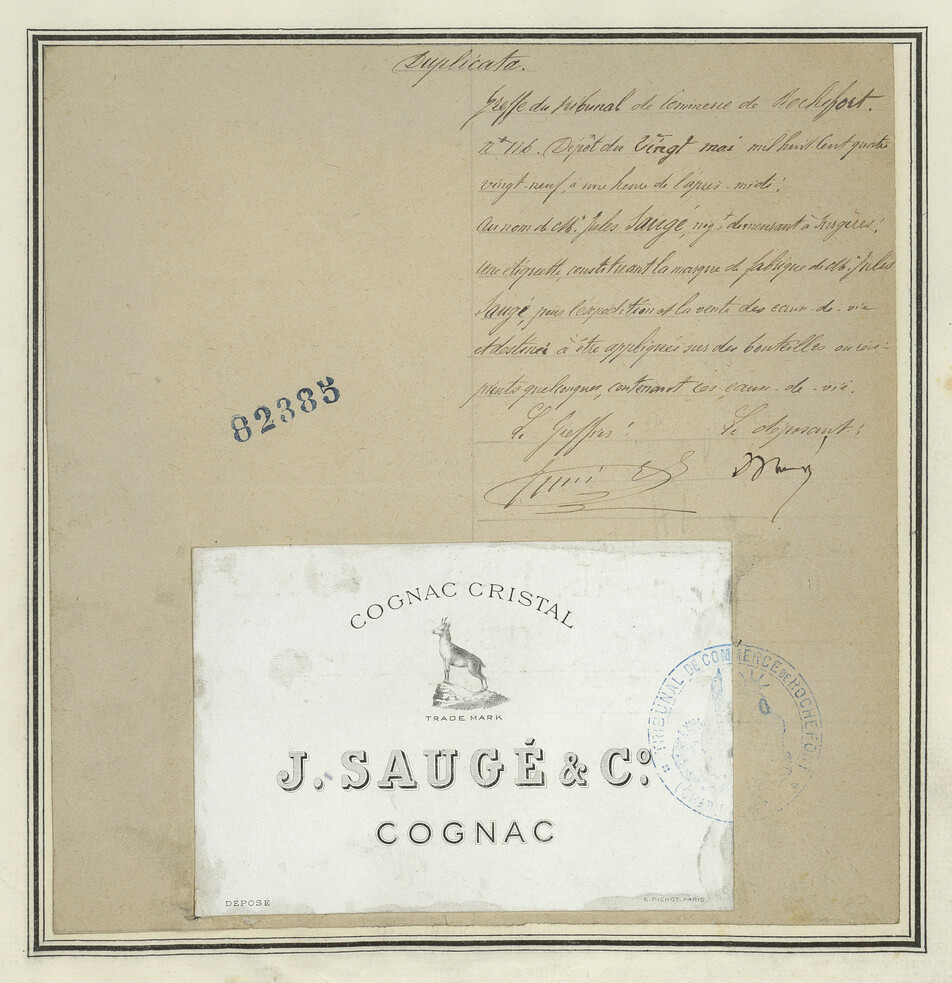 Duplicata.
Greffe du tribunal de Commerce de Rochefort.
Nº 116. Dépôt du Vingt mai mil huit Cent quatre
vingt-neuf, à une heure de l'après-midi;
Au nom de Mr. Jules Saugé, négt. demeurant à Surgères;
Une étiquette, constituant la marque de fabrique de Mr. Jules
Saugé, pour l'expédition et la vente des eaux-de-vie
et destinée à être appliquée sur des bouteilles ou réci-
pients quelconques, contenant ces eaux-de-vie.
Le Greffier: Le déposant:
82385
COGNAC CRISTAL
TRADE MARK
J. SAUGÉ & Cº.
COGNAC
DÉPOSÉ
E. PICHOT, PARIS
TRIBUNAL DE COMMERCE DE ROCHEFORT